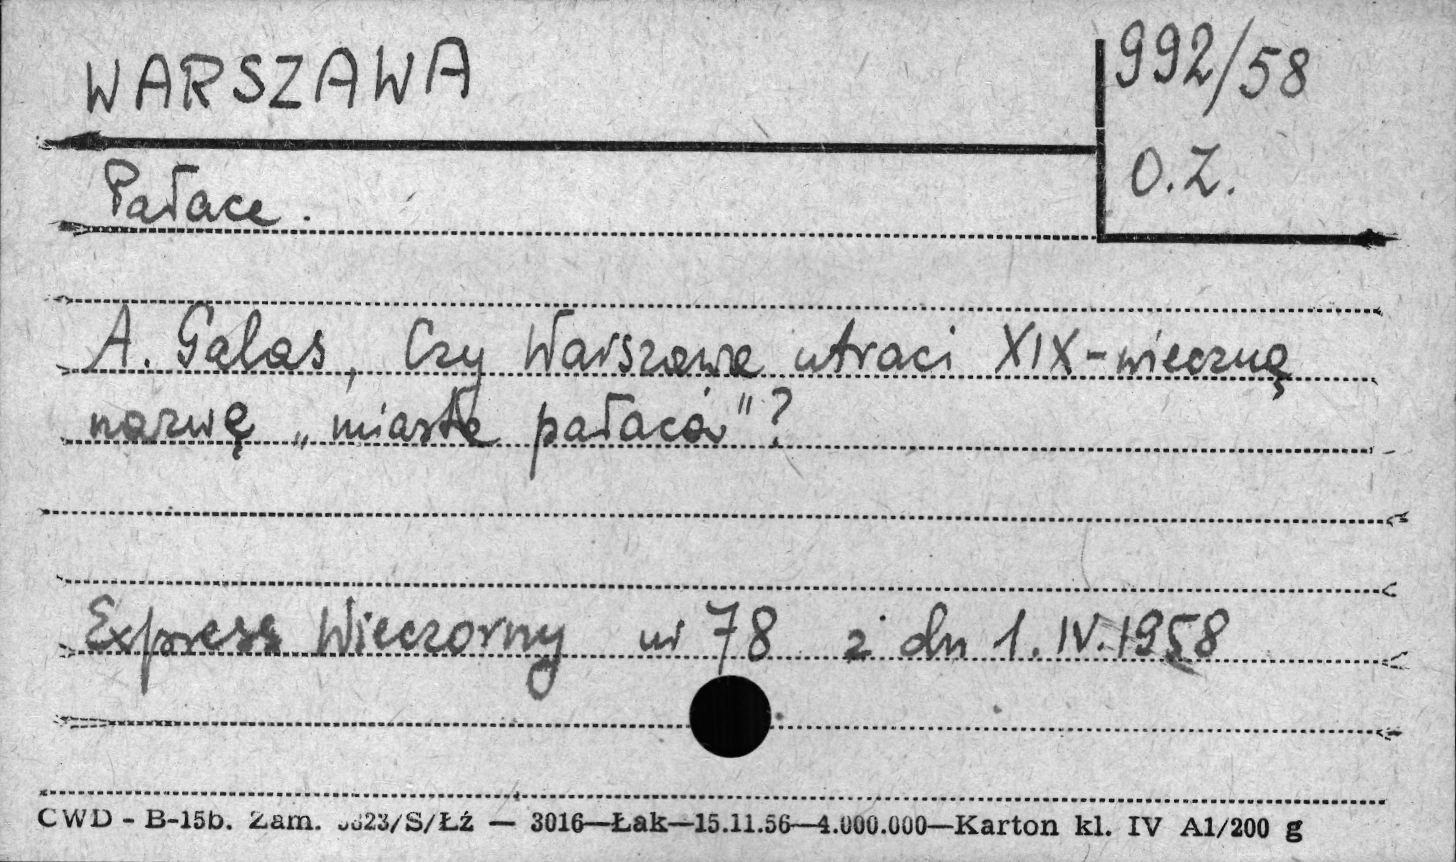 WARSZAWA
992/58
O.Z.
Pałace.
A. Galas, Czy Warszawa utraci XIX-wieczną
nazwę „miasta pałaców"?
Express Wieczorny nr 78 z dn 1.IV.1958
CWD - B-15b. Zam. 3823/S/Łź — 3016—Łak—15.11.56—4.000.000—Karton kl. IV A1/200 g